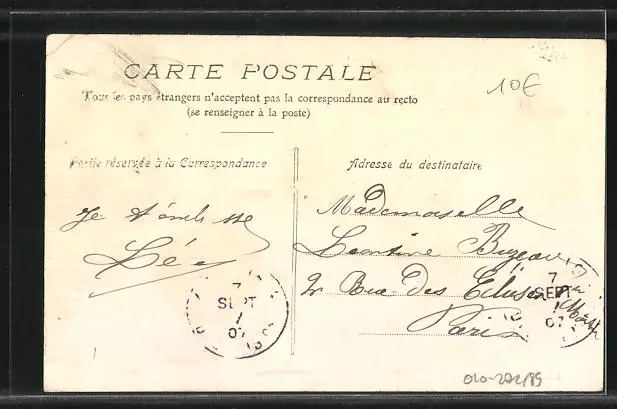 10€
CARTE POSTALE
Tous les pays étrangers n'acceptent pas la correspondance au recto
(se renseigner à la poste)
Partie réservée à la Correspondance
Adresse du destinataire
Je t'embrasse
Léo
Mademoiselle
Léontine
2 Rue des Ecluses St Martin
Paris
7
SEPT
07
7
SEPT
07